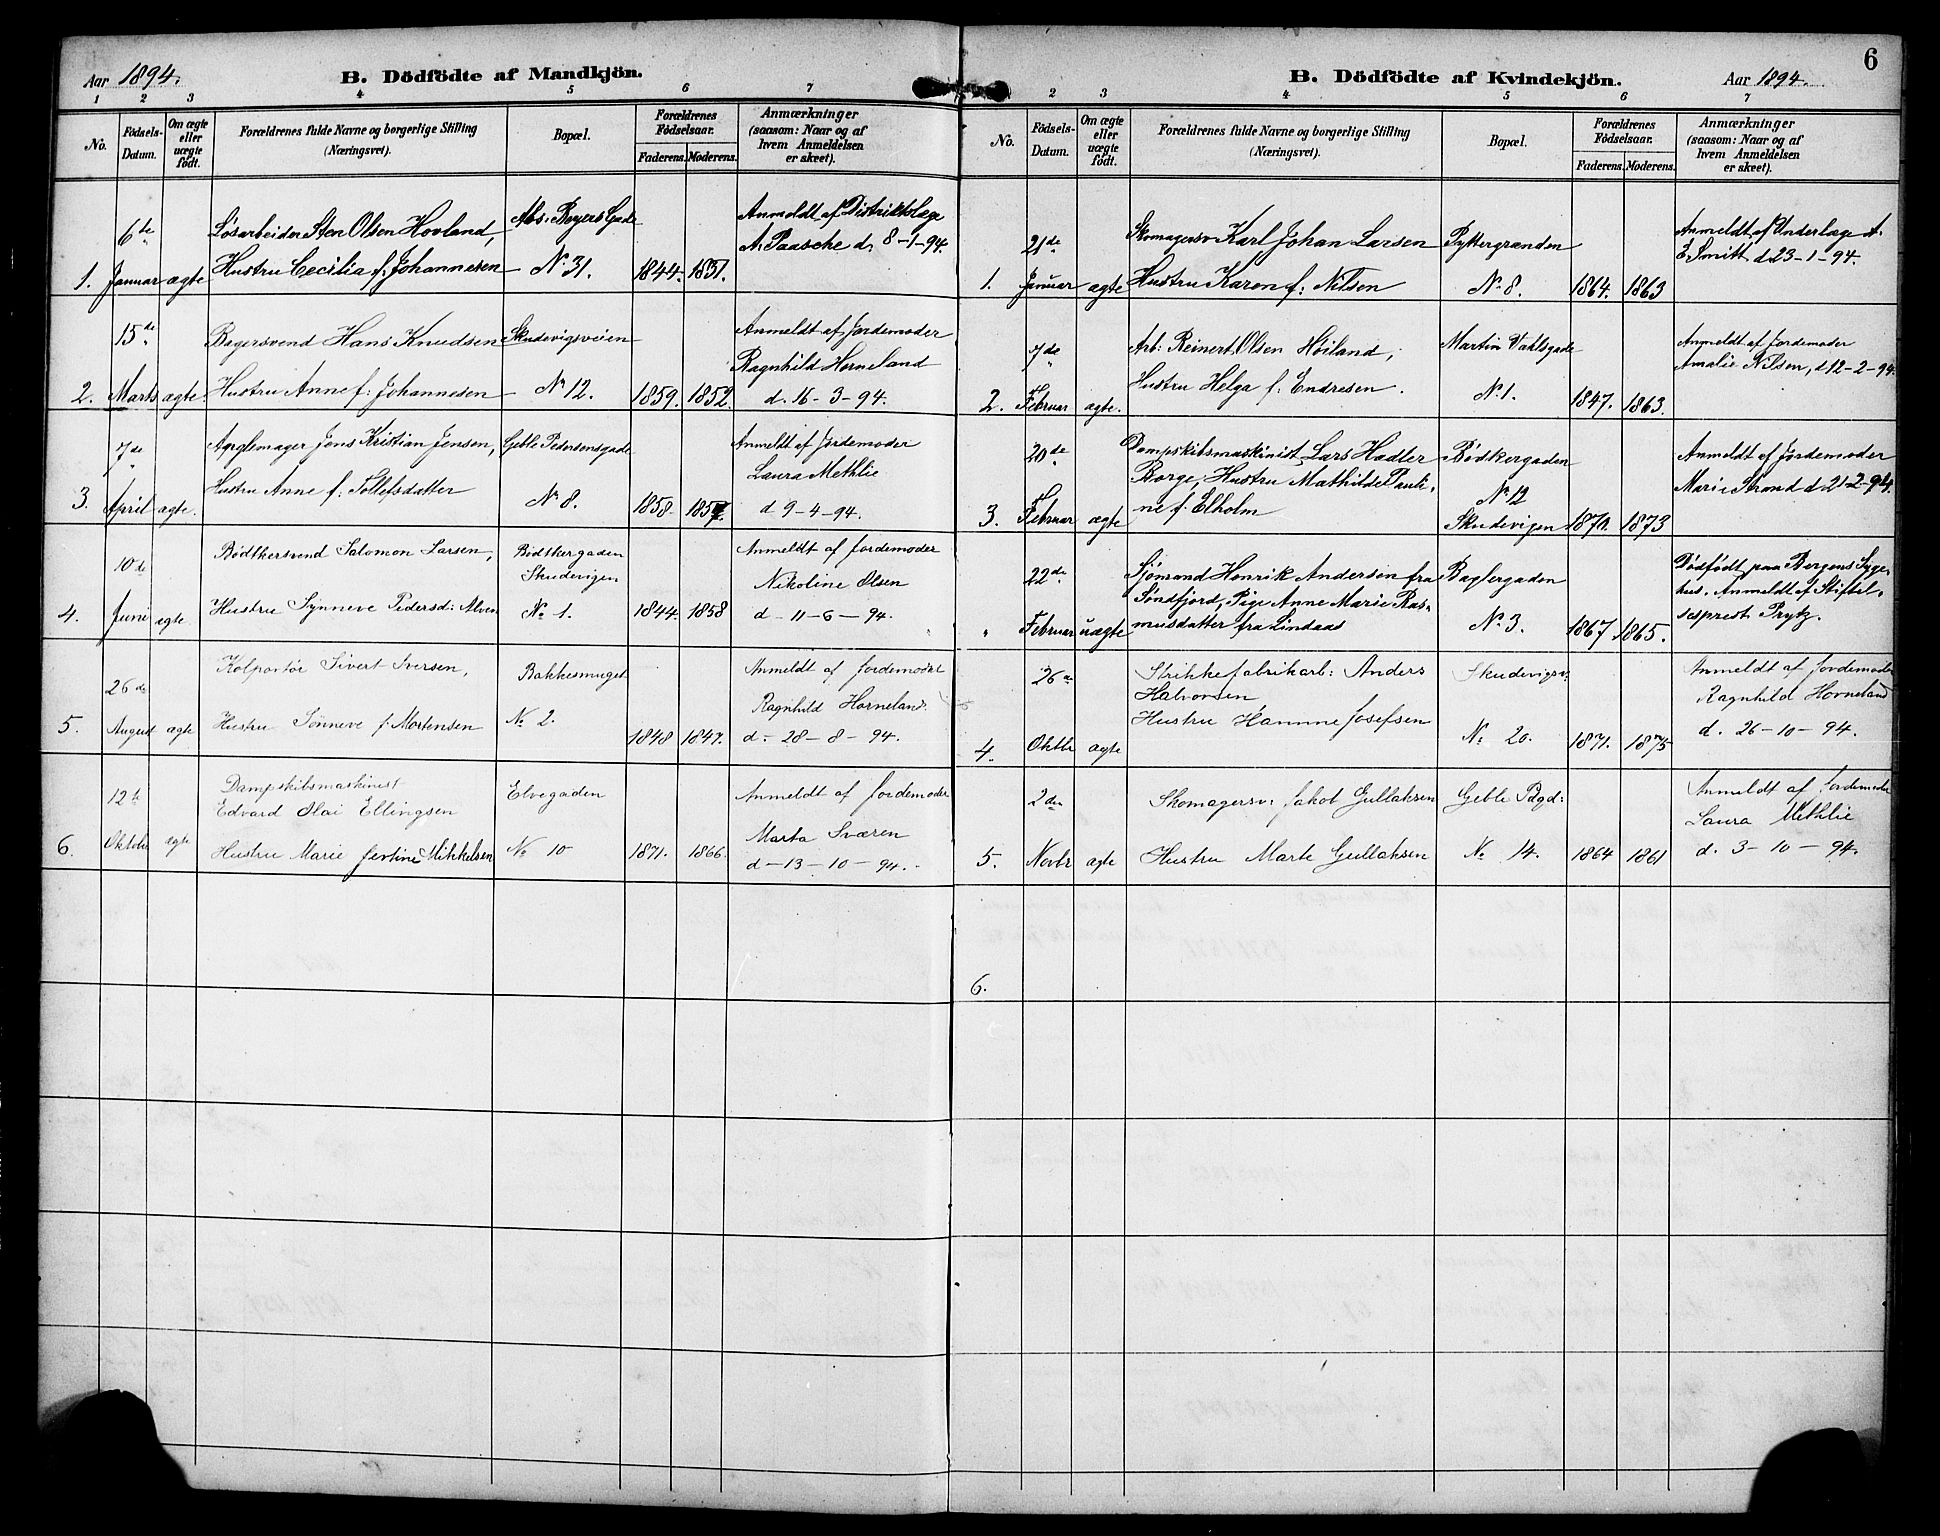 Aar 1894.
B. Dödfödte af Mandkjön.
1 2 3 4 5 6 7
No.
Födsels-Datum.
Om ægte eller uægte födt.
Forældrenes fulde Navne og borgerlige Stilling (Næringsvei).
Bopæl.
Forældrenes Födselsaar.
Faderens. Moderens.
Anmærkninger (saasom: Naar og af hvem Anmeldelsen er skeet).
6te Løsarbeider Sten Olsen Hovland, Abs: Beyers Gade Anmeldt af Distriktslæge
A. Paasche d. 8-1-94.
1. Januar ægte Hustru Cecilia f: Johannesen No 31. 1844. 1851.
15de Bagersvend Hans Knudsen Skudevigsveien Anmeldt af Jordemoder
Ragnhild Horneland
2. Marts ægte Hustru Anne f: Johannesen No 12. 1859. 1852. d. 16-3-94.
7de Jens Kristian Jensen, Geble Pedersensgade Anmeldt af Jordemoder
Laura Methlie
3. April ægte. Hustru Anne f: Sollefsdatter No 8. 1858. 1857. d 9-4-94.
10de Bødtkersvend Salomon Larsen, Bødtkergaden Anmeldt af Jordemoder
Skudevigen Nikoline Olsen
4. Juni ægte Hustru Synneve Pedersd: No 1. 1844. 1858 d-11-6-94.
26de Kolportør Sivert Iversen, Bakkesmuget Anmeldt af Jordemoder
Ragnhild Horneland.
5. August ægte Hustru Sønneve f: Mortensen No 2. 1848 1847. d-28-8-94.
12te Dampskibsmaskinist
Edvard Olai Ellingsen Elvegaden Anmeldt af Jordemoder
Marta Sværen
6. Oktober ægte Hustru Marie Jertine Mikkelsen No 10 1871. 1866. d-13-10-94.
B. Dödfödte af Kvindekjön.
Aar 1894.
6
2 3 4 5 6 7
No.
Födsels-Datum.
Om ægte eller uægte födt.
Forældrenes fulde Navne og borgerlige Stilling (Næringsvei).
Bopæl.
Forældrenes Födselsaar.
Faderens. Moderens.
Anmærkninger (saasom: Naar og af hvem Anmeldelsen er skeet).
21de Skomagersv Karl Johan Larsen Pyttergranden Anmeldt af Underlæge A.
E Smitt d 23-1-94.
1. Januar ægte Hustru Karen f: Nilsen No 8. 1864. 1863
7de Arb: Reinert Olsen Høiland, Martin Vahlsgade Anmeldt af Jordemoder
Amalie Nilsen, d 12-2-94.
2. Februar ægte. Hustru Helga f: Endresen. No 1. 1847. 1863.
20de Dampskibsmaskinist Lars Hadler Bødkergaden Anmeldt af Jordemoder
Borge, Hustru Mathilde Pauli- No 12 Marie Strand d 21-2-94.
3. Februar ægte ne f. Elholm Skudevigen 1870. 1873
22de Sjömand Henrik Andersen fra Baglergaden Dödfödt paa Bergens Syge-
Söndfjord, Pige Anne Marie Ras- hus. Anmeldt af Stiftel-
" Februar uægte musdatter fra Lindaas No 3. 1867 1865. sesprest Prytz.
26de Strikkefabrikarb: Anders Skudevigsv. Anmeldt af Jordemoder
Halvorsen Ragnhild Horneland
4. Oktbr ægte Hustru Hamine Josefsen No 20. 1871. 1875 d. 26-10-94.
2den Skomagersv: Jakob Gullaksen Geble Pdgd: Anmeldt af Jordemoder
Laura Methlie
5. Novbr ægte Hustru Marte Gullaksen No 14. 1864 1861 d. 3-10-94.
6.